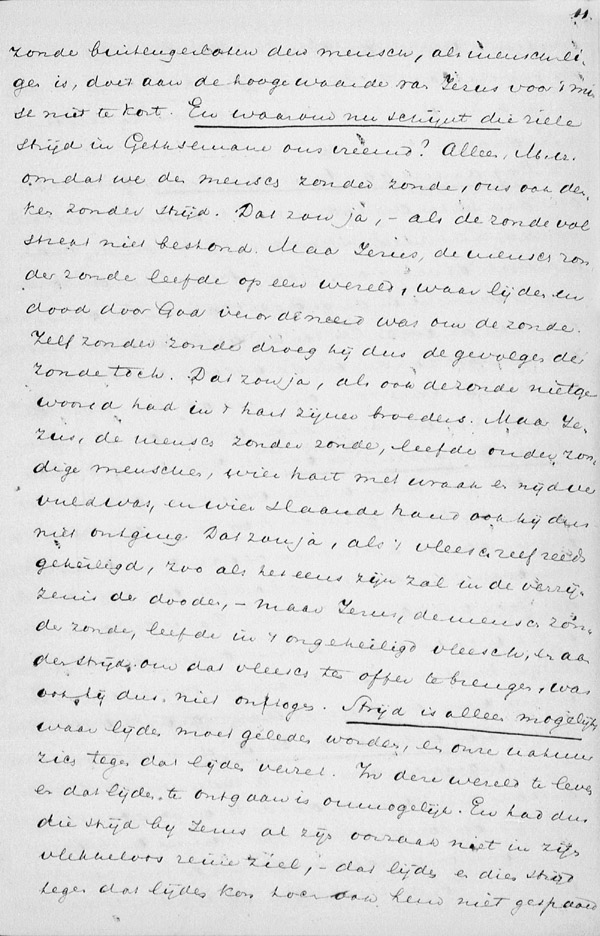 11.
zonde buitengesloten den mensch, als menschli-
ger is, doet aan de hooge waarde van Jezus voor 't
se niet te kort. En waarom nu schijnt die ziele
strijd in Gethsemané ons vreemd? Alleen, M.H.
omdat we den mensch zonder zonde, ons ook den-
ken zonder strijd. Dat zou ja, – als de zonde vol
strekt niet bestond. Maar Jezus, de mensch zon
der zonde leefde op een wereld, waar lijden en
dood door God verordineerd was om de zonde.
Zelf zonder zonde droeg hij dus de gevolgen der
zonde toch. Dat zou ja, als ook de zonde niet ge
woond had in 't hart zijner broeders. Maar Je-
zus, de mensch zonder zonde, leefde onder zon-
dige menschen, wier hart met wraak en nijd ver
vuld was, en wier slaande hand ook hij dus
niet ontging. Dat zou ja, als 't vleesch zelf reeds
geheiligd, zoo als het eens zijn zal in de verrij-
zenis der dooden, – maar Jezus, de mensch zon-
der zonde, leefde in 't ongeheiligd vleesch, en aan
den strijd, om dat vleesch ten offer te brengen, was
ook hij dus niet onttogen. Strijd is alleen mogelijk,
waar lijden moet geleden worden, en onze natuur
zich tegen dat lijden verzet. In deze wereld te leven
en dat lijden te ontgaan is onmogelijk. En had dus
die strijd bij Jezus al zijn oorzaak niet in zijn
vlekkeloos reine ziel, – dat lijden en dien strijd
tegen dat lijden kon toch ook hem niet gespaard